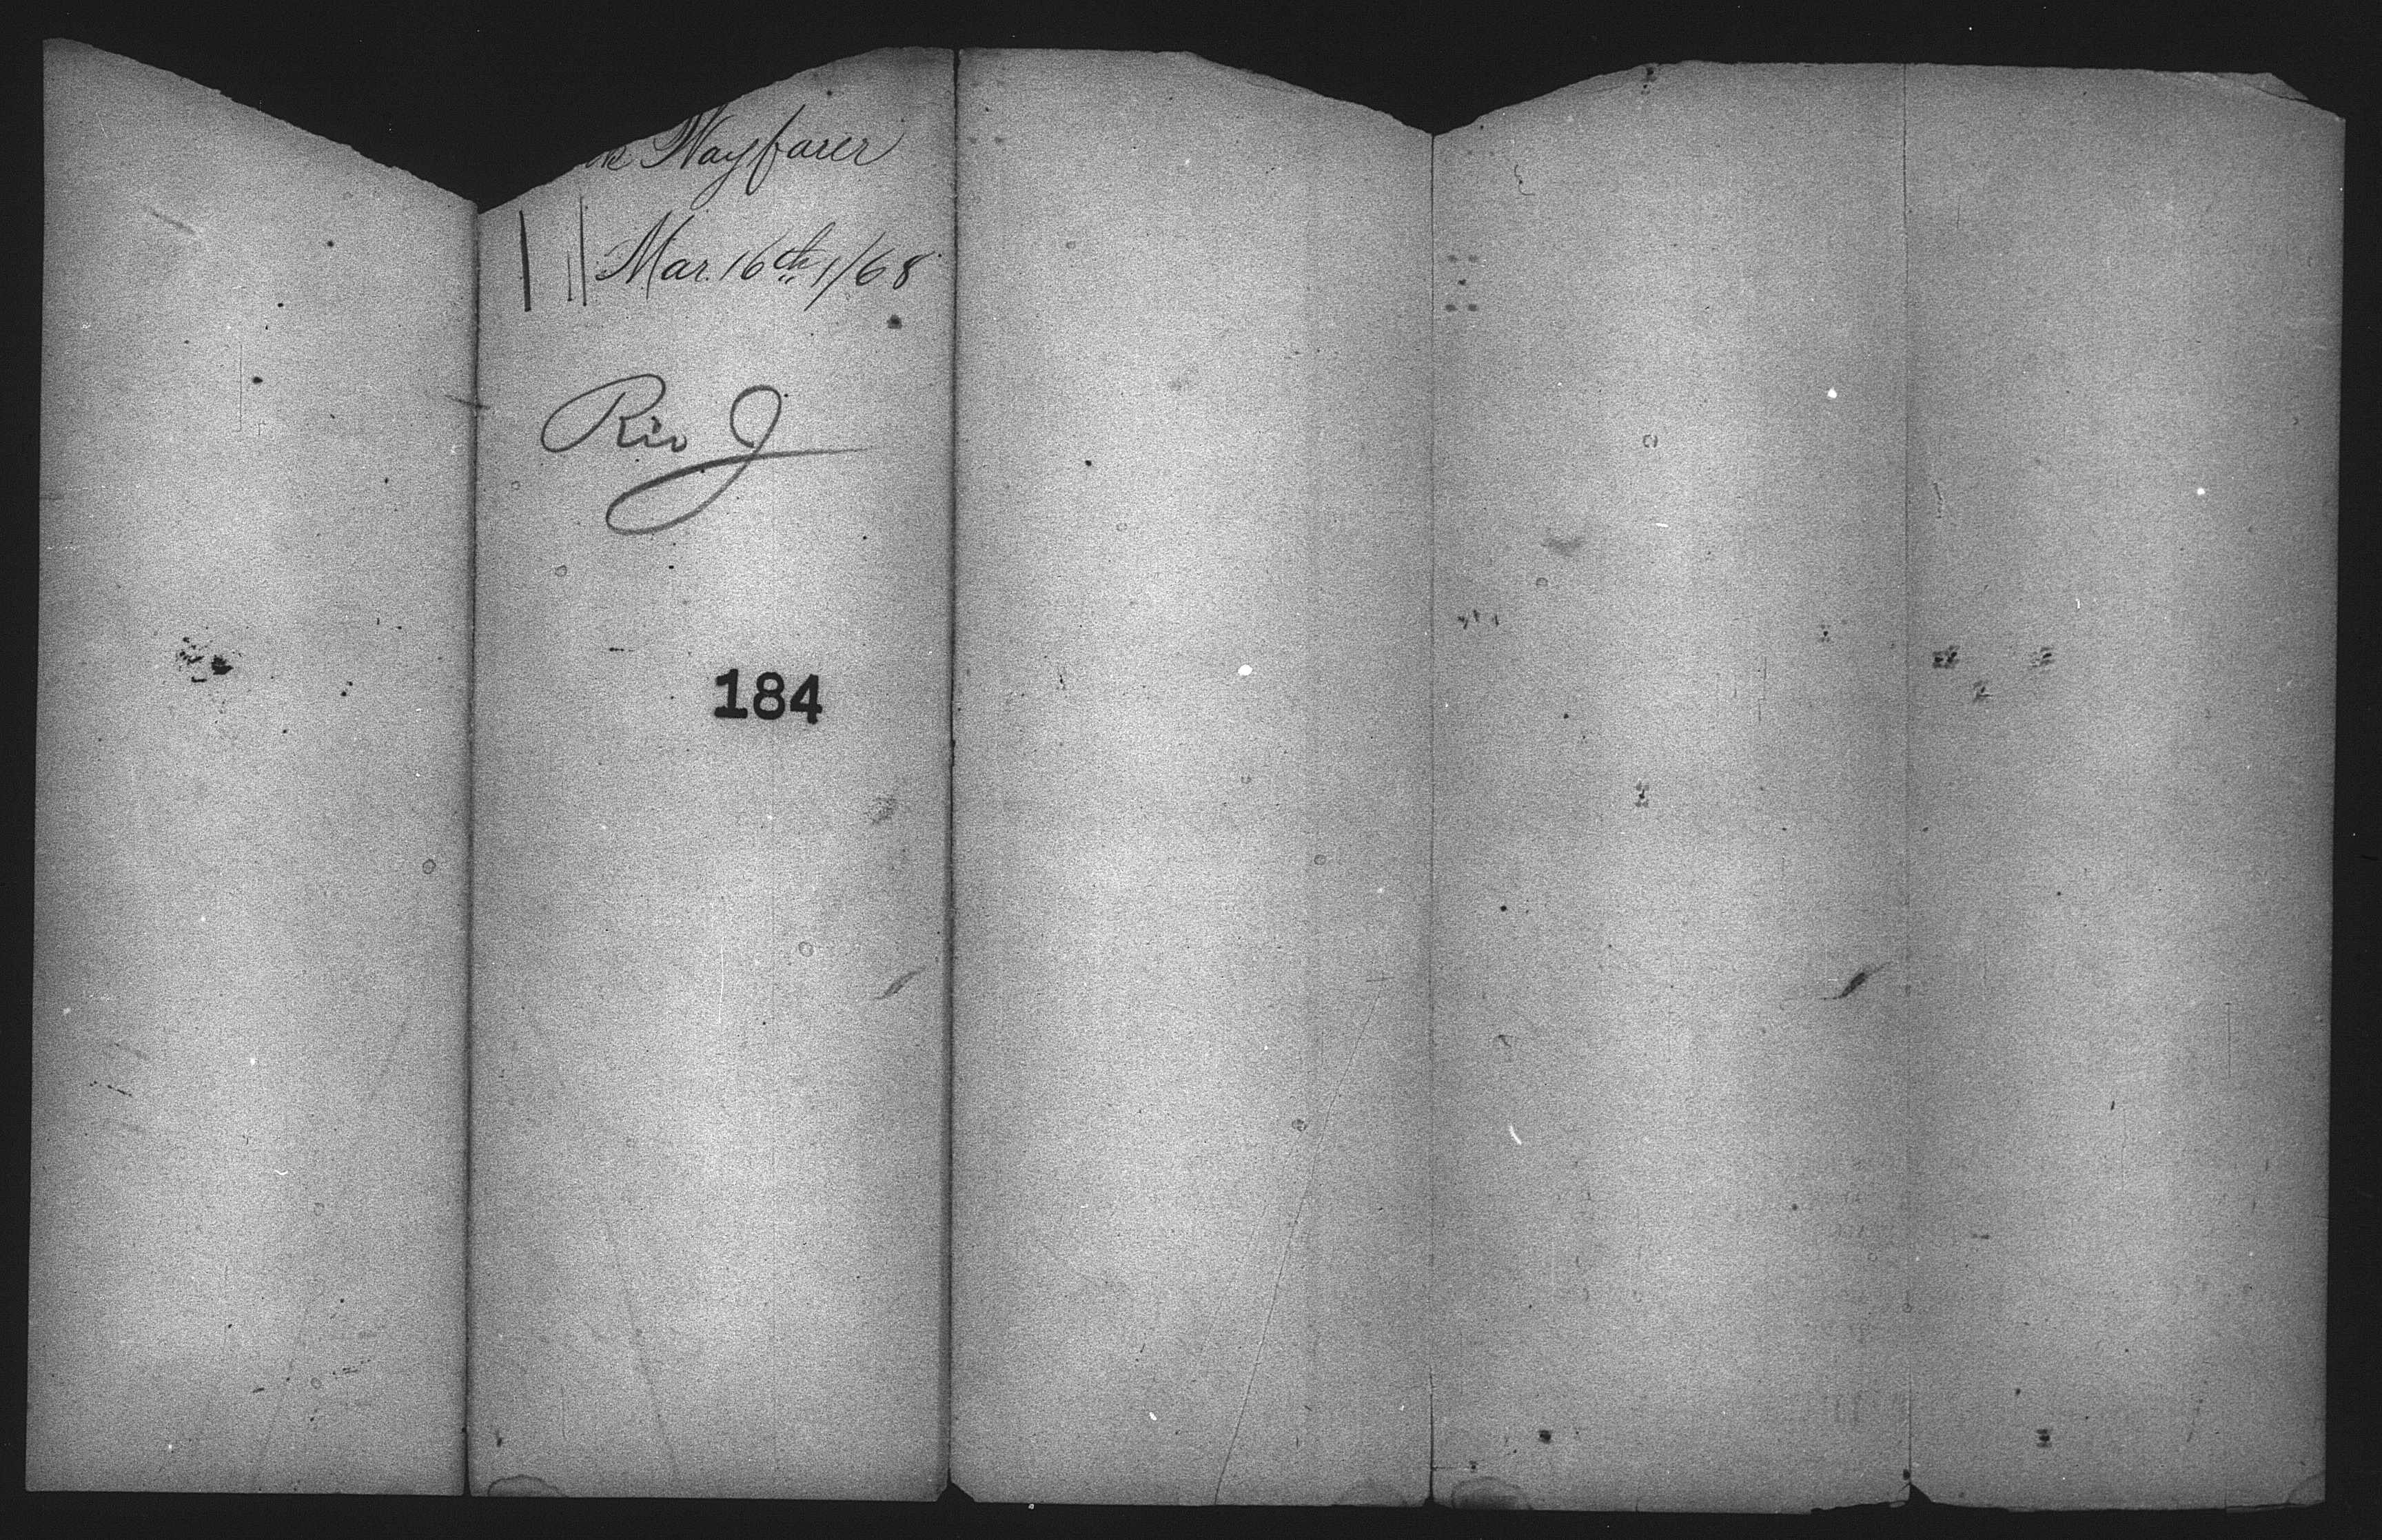 Wayfarer
Mar. 16th, 1/68
Rio J
184